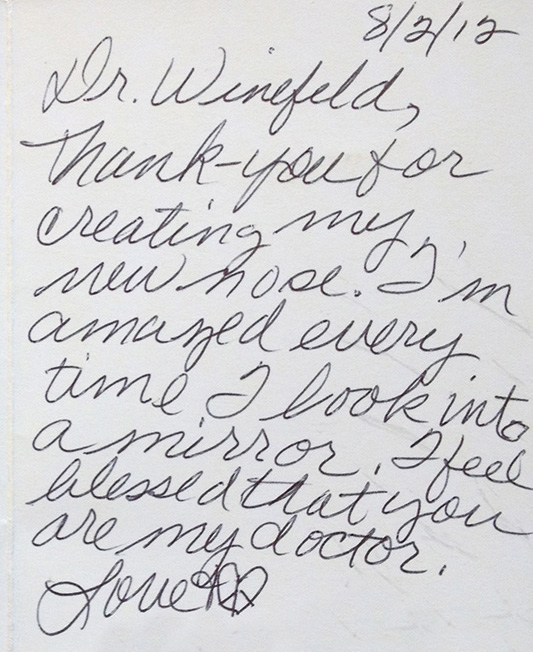 8/2/12
Dr. Winefeld,
Thank-you for
creating my
new nose. I'm
amazed every
time I look into
a mirror. I feel
blessed that you
are my doctor.
Love